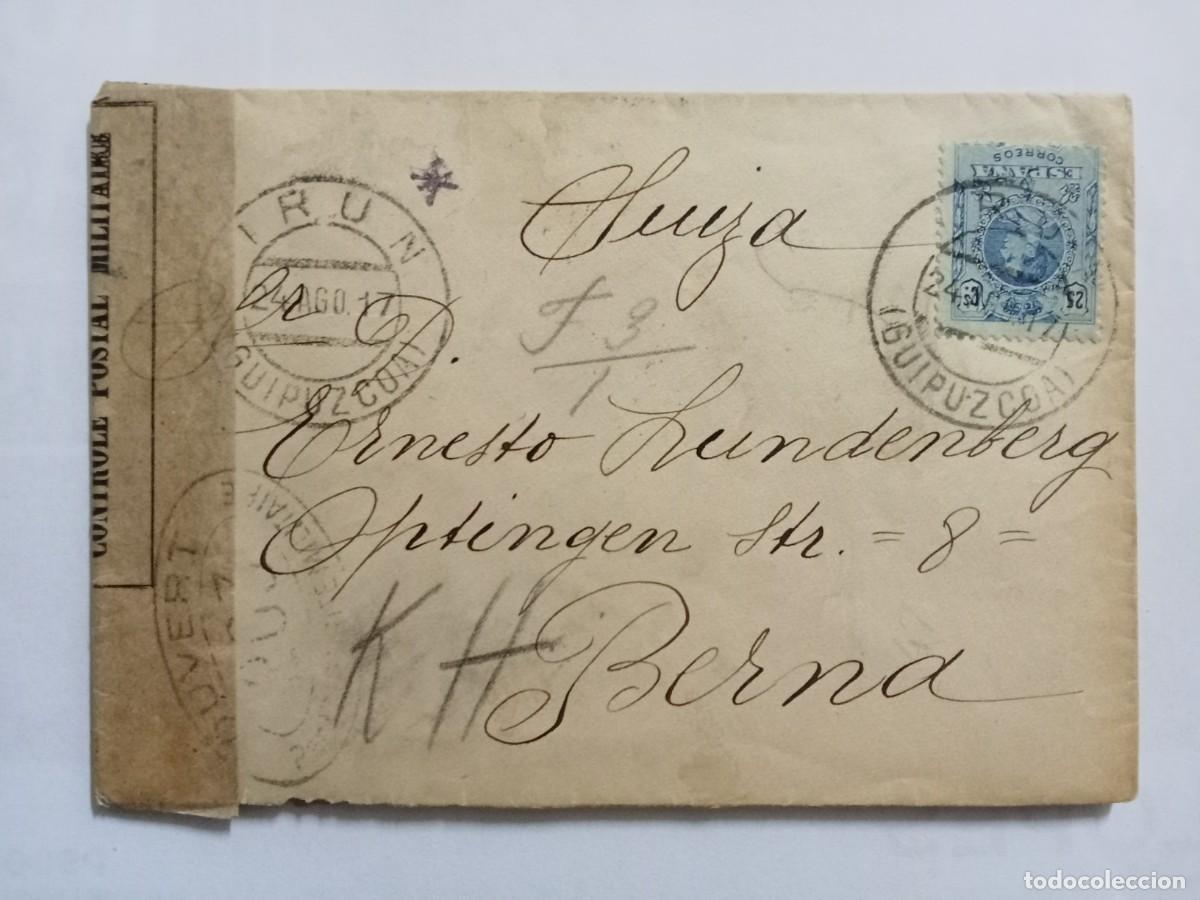 CONTROLE POSTAL MILITAIRE
IRUN
24 AGO. 17
(GUIPUZCOA)
Suiza
CORREOS
ESPAÑA
25 Cs
(GUIPUZCOA)
F 3
1
Ernesto Lundenberg
Optingen Str. = 8 =
Berna
K H
OUVERT
todocoleccion